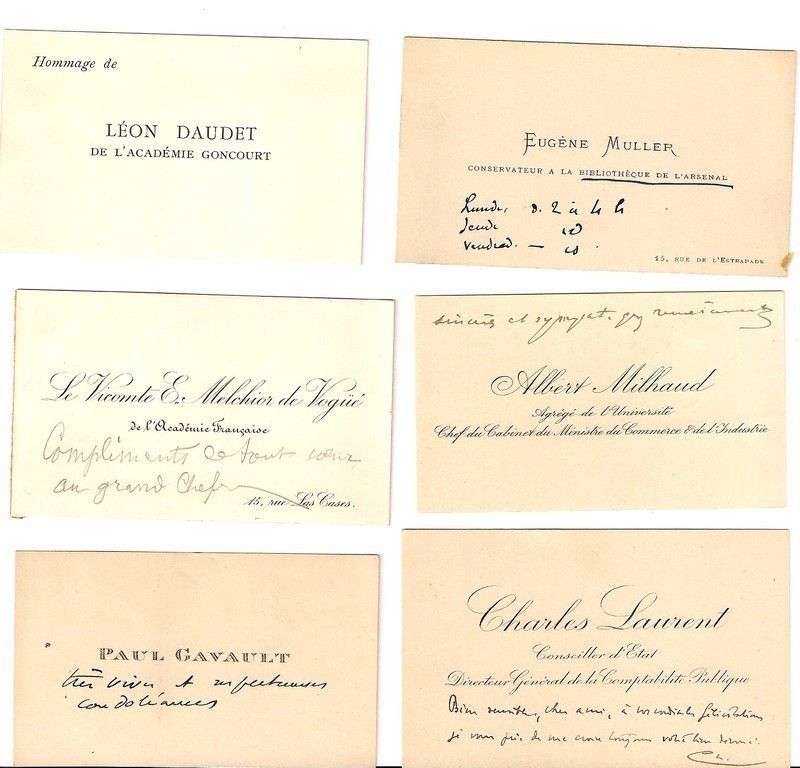 Hommage de
LÉON DAUDET
DE L'ACADÉMIE GONCOURT
EUGÈNE MULLER
CONSERVATEUR A LA BIBLIOTHÈQUE DE L'ARSENAL
Lundi, D. 2 à 4 h
Jeudi id
Vendred. — id.
15, RUE DE L'ESTRAPADE
Le Vicomte E. Melchior de Vogüé
de l'Académie Française
Compliments de tout cœur
au grand Chef
15, rue Las Cases.
sincères et sympat. remerciements
Albert Milhaud
Agrégé de l'Université
Chef du Cabinet du Ministre du Commerce & de l'Industrie
PAUL GAVAULT
très vives et respectueuses
condoléances
Charles Laurent
Conseiller d'Etat
Directeur Général de la Comptabilité Publique
Bien sensible, cher ami, à vos cordiales félicitations
je vous prie de me croire toujours votre bien dévoué.
Ch.